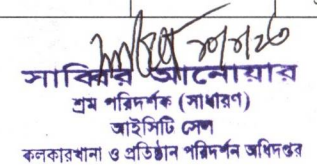 সাব্বির আনোয়ার
শ্রম পরিদর্শক (সাধারণ)
আইসিটি সেল
কলকারখানা ও প্রতিষ্ঠান পরিদর্শন অধিদপ্তর